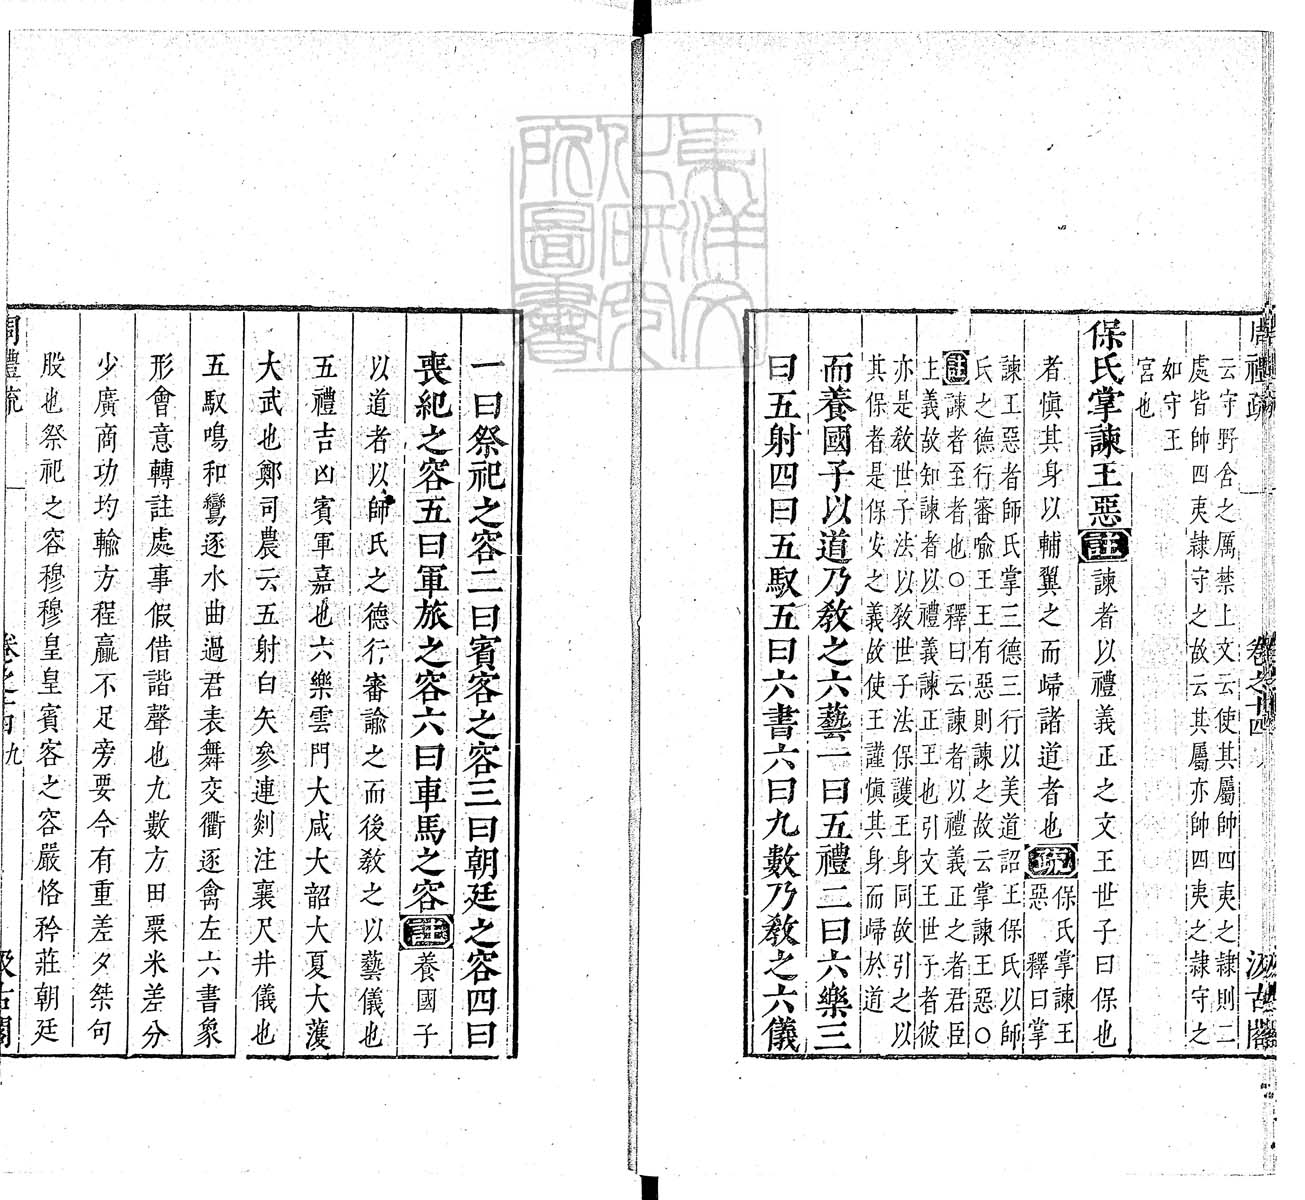 周禮疏 卷之十四 汲古閣
云守野舍之厲禁上文云使其屬帥四夷之隸則二
處皆帥四夷隸守之故云其屬亦帥四夷之隸守之
如守王
宮也
保氏掌諫王惡註諫者以禮義正之文王世子曰保也
者慎其身以輔翼之而歸諸道者也疏保氏掌諫王
惡 釋曰掌
諫王惡者師氏掌三德三行以美道詔王保氏以師
氏之德行審喻王王有惡則諫之故云掌諫王惡○
註諫者至者也○釋曰云諫者以禮義正之者君臣
主義故知諫者以禮義諫正王也引文王世子者彼
亦是敎世子法以敎世子法保護王身同故引之以
其保者是保安之義故使王謹慎其身而歸於道
而養國子以道乃敎之六藝一曰五禮二曰六樂三
曰五射四曰五馭五曰六書六曰九數乃敎之六儀
東洋文
化研究
所圖書
一曰祭祀之容二曰賓客之容三曰朝廷之容四曰
喪紀之容五曰軍旅之容六曰車馬之容註養國子
以道者以師氏之德行審諭之而後敎之以藝儀也
五禮吉凶賓軍嘉也六樂雲門大咸大韶大夏大濩
大武也鄭司農云五射白矢參連剡注襄尺井儀也
五馭鳴和鸞逐水曲過君表舞交衢逐禽左六書象
形會意轉註處事假借諧聲也九數方田粟米差分
少廣商功均輸方程贏不足旁要今有重差夕桀句
股也祭祀之容穆穆皇皇賓客之容嚴恪矜莊朝廷
周禮疏 卷之十四 九 汲古閣